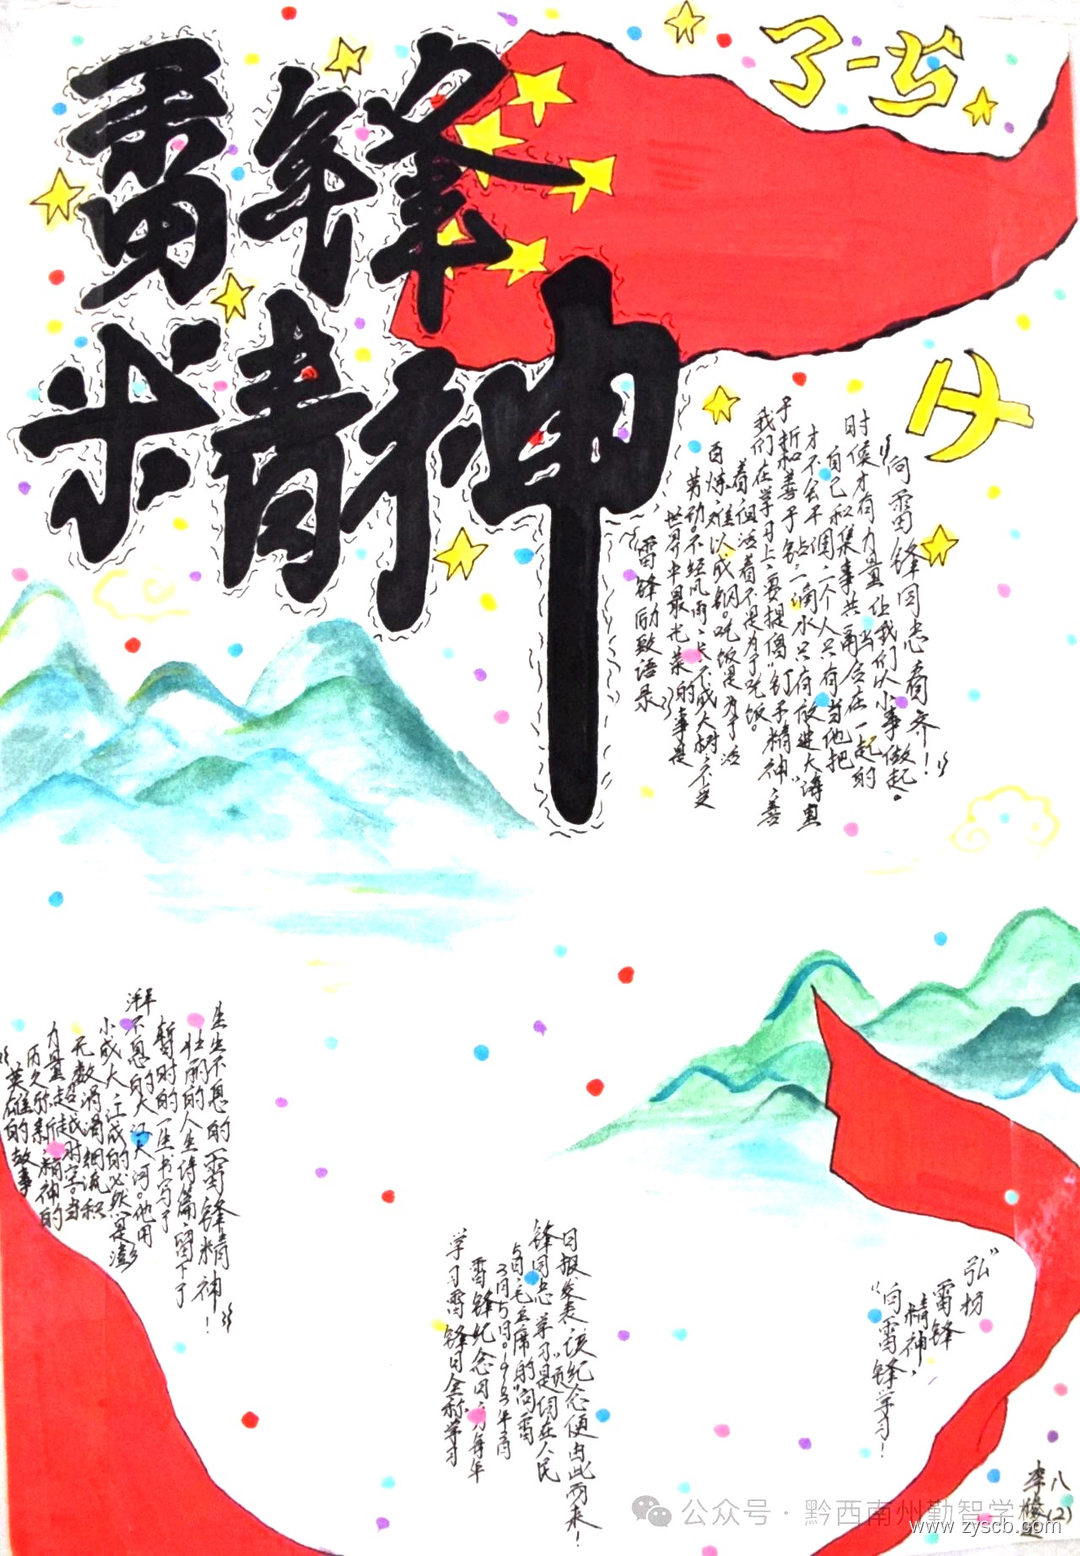 雷锋
精神
雷锋励致语录
世界上最光荣的事是
劳动不经风雨,长不成大树,不受
百炼,难以成钢吃饭是为了活
着,但活着不是为了吃饭。
我们在学习上要提倡“钉子精神,善
于挤和善于钻一滴水只有放进大海里
才不会干涸,一个人只有当他把
自己和集事共 会在一起的
时候才有力量让我们从小事做起。
“向雷锋同志看齐!”
“英雄的故事
历久弥新,精神的
力量超越时空。当
无数涓涓细流积
小成大,江成的必然是澎
湃不息的大江大河。他用
暂时的一生书写了
壮丽的人生诗篇,留下了
生生不息的雷锋精神!”
学习雷锋日全称学习
雷锋纪念日,为每年
3月5日。1963年3月
5日毛主席的“向雷
锋同志学习”题词在人民
日报发表,该纪念便由此而来!
“弘扬
雷锋
精神,
“向雷锋学习!
八(2)
李
公众号·黔西南州勤智学校
www.zyscb.com